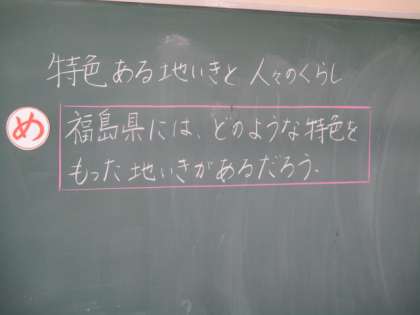 特色ある地いきと人々のくらし
め
福島県には、どのような特色を
もった地いきがあるだろう.